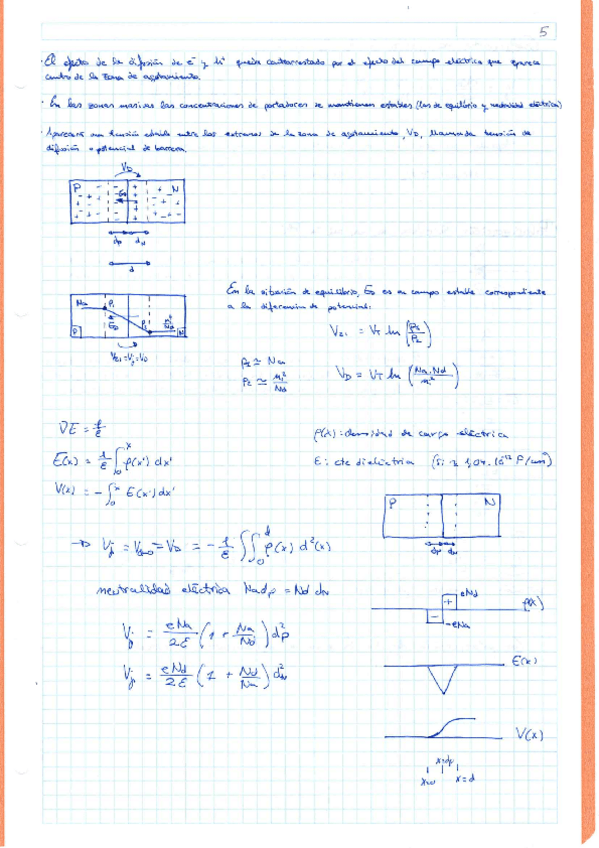 5
· El efecto de la difusión de e⁻ y h⁺ queda contrarrestado por el efecto del campo eléctrico que aparece
dentro de la zona de agotamiento.
· En las zonas masivas las concentraciones de portadores se mantienen estables (las de equilibrio y neutralidad eléctrica)
· Aparecerá una tensión entre los extremos de la zona de agotamiento, V_D, llamada tensión de
difusión o potencial de barrera.
V_D
P N
dp dn
d
Na P₁ E_D P₂
P N
V₂₁=Vj=V_D
En la situación de equilibrio, E_D es un campo estable correspondiente
a la diferencia de potencial:
V₂₁ = V_T ln (P₁/P₂)
p₁ ≃ Na
p₂ ≃ ni²/Nd
V_D = V_T ln (Na·Nd/ni²)
∇E = ρ/ε
E(x) = 1/ε ∫₀ˣ ρ(x') dx'
V(x) = - ∫₀ˣ E(x') dx'
ρ(x): densidad de carga eléctrica
ε: cte dieléctrica (Si ≈ 1,04·10⁻¹² F/cm)
P N
dp dn
→ Vj = V_D = - 1/ε ∬₀ᵈ ρ(x) d²(x)
neutralidad eléctrica Na dp = Nd dn
Vj = eNa/2ε (1 + Na/Nd) dp²
Vj = eNd/2ε (1 + Nd/Na) dn²
+ eNd
ρ(x)
- -eNa
E(x)
V(x)
x=dp
x=0 x=d